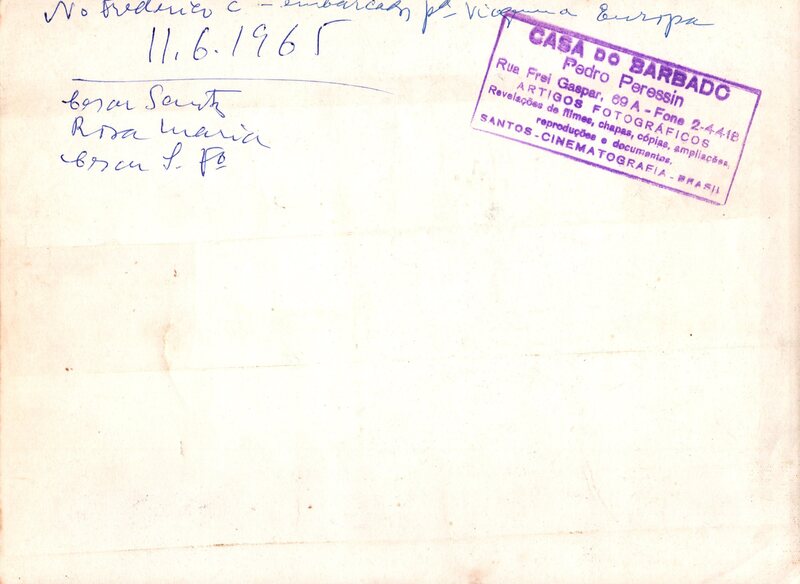 No Frederico C - embarcados pª viagem a Europa
11.6.1965
Cesar Santz
Rosa Maria
Cesar S. Fº
CASA DO BARBADO
Pedro Peressin
Rua Frei Gaspar, 69 A - Fone 2-4418
ARTIGOS FOTOGRÁFICOS
Revelações de filmes, chapas, cópias, ampliações,
reproduções e documentos.
SANTOS - CINEMATOGRAFIA - BRASIL